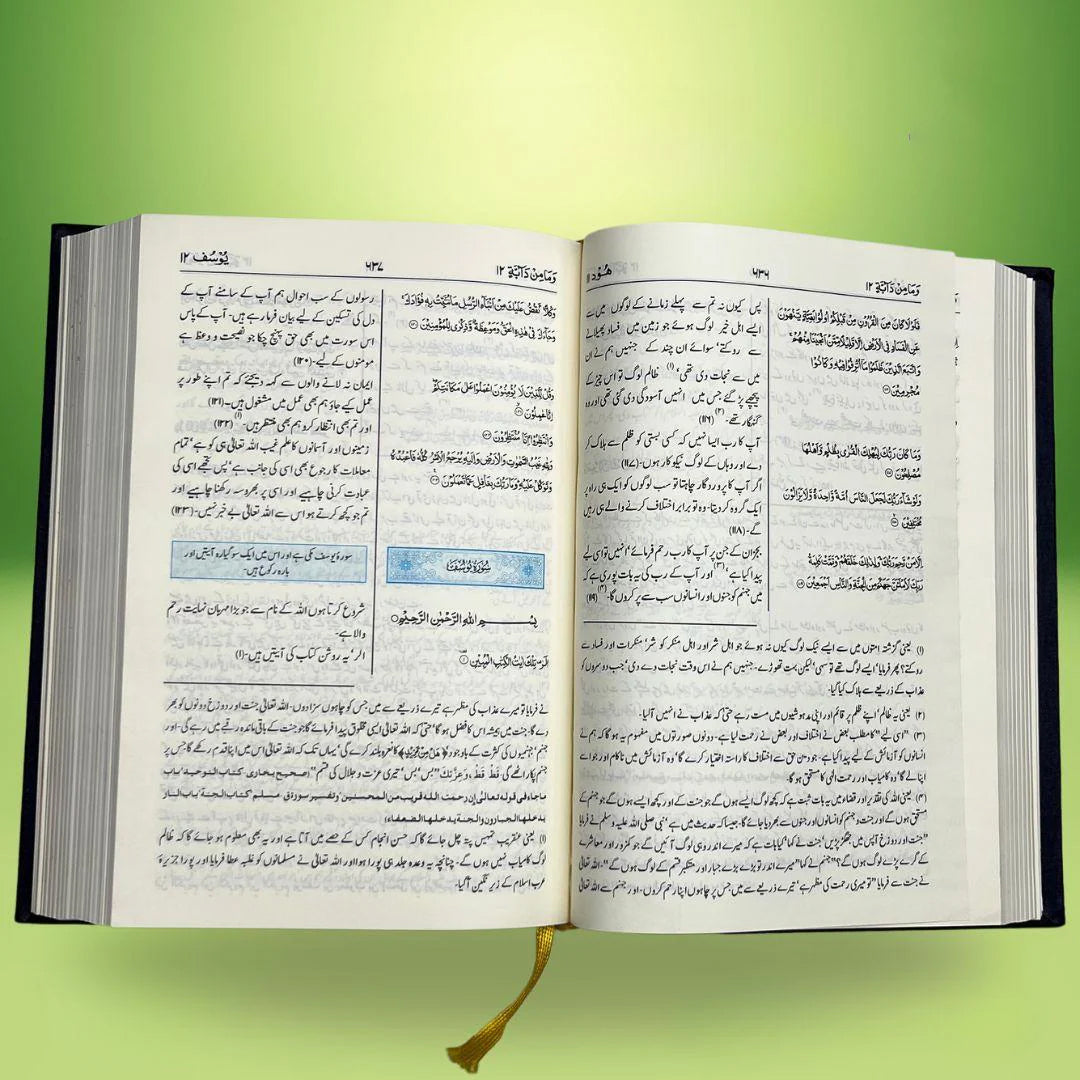 وَمَا مِنْ دَآبَّةٍ ١٢
٦٣٦
هُوْد ١١
فَلَوْلَا كَانَ مِنَ الْقُرُوْنِ مِنْ قَبْلِكُمْ اُولُوْا بَقِيَّةٍ يَّنْهَوْنَ
عَنِ الْفَسَادِ فِى الْاَرْضِ اِلَّا قَلِيْلًا مِّمَّنْ اَنْجَيْنَا مِنْهُمْ ۚ
وَاتَّبَعَ الَّذِيْنَ ظَلَمُوْا مَآ اُتْرِفُوْا فِيْهِ وَكَانُوْا
مُجْرِمِيْنَ
وَمَا كَانَ رَبُّكَ لِيُهْلِكَ الْقُرٰى بِظُلْمٍ وَّاَهْلُهَا
مُصْلِحُوْنَ
وَلَوْ شَآءَ رَبُّكَ لَجَعَلَ النَّاسَ اُمَّةً وَّاحِدَةً وَّلَا يَزَالُوْنَ
مُخْتَلِفِيْنَ
اِلَّا مَنْ رَّحِمَ رَبُّكَ ۭ وَلِذٰلِكَ خَلَقَهُمْ ۭ وَتَمَّتْ كَلِمَةُ
رَبِّكَ لَاَمْلَــــَٔنَّ جَهَنَّمَ مِنَ الْجِنَّةِ وَالنَّاسِ اَجْمَعِيْنَ
پس کیوں نہ تم سے پہلے زمانے کے لوگوں میں سے
ایسے اہل خیر لوگ ہوئے جو زمین میں فساد پھیلانے
سے روکتے، سوائے ان چند کے جنہیں ہم نے ان
میں سے نجات دی تھی، (۱) ظالم لوگ تو اس چیز کے
پیچھے پڑ گئے جس میں انہیں آسودگی دی گئی تھی اور وہ
گنہگار تھے۔ (۲) (۱۱۶)
آپ کا رب ایسا نہیں کہ کسی بستی کو ظلم سے ہلاک کر
دے اور وہاں کے لوگ نیکوکار ہوں۔ (۱۱۷)
اگر آپ کا پروردگار چاہتا تو سب لوگوں کو ایک ہی راہ پر
ایک گروہ کر دیتا۔ وہ تو برابر اختلاف کرنے والے ہی رہیں
گے۔ (۱۱۸)
بجز ان کے جن پر آپ کا رب رحم فرمائے، انہیں تو اسی لیے
پیدا کیا ہے، (۳) اور آپ کے رب کی یہ بات پوری ہے کہ
میں جہنم کو جنوں اور انسانوں سب سے پر کروں گا۔ (۴) (۱۱۹)
(۱) یعنی گزشتہ امتوں میں سے ایسے نیک لوگ کیوں نہ ہوئے جو اہل شر اور اہل منکر کو شر، منکرات اور فساد سے
روکتے؟ پھر فرمایا، ایسے لوگ تھے تو سہی، لیکن بہت تھوڑے۔ جنہیں ہم نے اس وقت نجات دے دی، جب دوسروں کو
عذاب کے ذریعے سے ہلاک کیا گیا۔
(۲) یعنی یہ ظالم، اپنے ظلم پر قائم اور اپنی مدہوشیوں میں مست رہے حتیٰ کہ عذاب نے انہیں آلیا۔
(۳) "اسی لیے" کا مطلب بعض نے اختلاف اور بعض نے رحمت لیا ہے۔ دونوں صورتوں میں مفہوم یہ ہو گا کہ ہم نے
انسانوں کو آزمائش کے لیے پیدا کیا ہے۔ جو دین حق سے اختلاف کا راستہ اختیار کرے گا، وہ آزمائش میں ناکام اور جو اسے
اپنا لے گا، وہ کامیاب اور رحمت الٰہی کا مستحق ہو گا۔
(۴) یعنی اللہ کی تقدیر اور قضاء میں یہ بات ثبت ہے کہ کچھ لوگ ایسے ہوں گے جو جنت کے اور کچھ ایسے ہوں گے جو جہنم کے
مستحق ہوں گے اور جنت و جہنم کو انسانوں اور جنوں سے بھر دیا جائے گا۔ جیسا کہ حدیث میں ہے، نبی صلی اللہ علیہ و سلم نے فرمایا
"جنت اور دوزخ آپس میں جھگڑ پڑیں، جنت نے کہا، کیا بات ہے کہ میرے اندر وہی لوگ آئیں گے جو کمزور اور معاشرے
کے گرے پڑے لوگ ہوں گے؟" جہنم نے کہا "میرے اندر تو بڑے بڑے جبار اور متکبر قسم کے لوگ ہوں گے"۔ اللہ تعالیٰ
نے جنت سے فرمایا "تو میری رحمت کی مظہر ہے، تیرے ذریعے سے میں جس پر چاہوں اپنا رحم کروں۔ اور جہنم سے اللہ تعالیٰ
وَمَا مِنْ دَآبَّةٍ ١٢
٦٣٧
يُوْسُف ١٢
وَكُلًّا نَّقُصُّ عَلَيْكَ مِنْ اَنْۢبَآءِ الرُّسُلِ مَا نُثَبِّتُ بِهٖ فُؤَادَكَ ۚ
وَجَآءَكَ فِيْ هٰذِهِ الْحَقُّ وَمَوْعِظَةٌ وَّذِكْرٰي لِلْمُؤْمِنِيْنَ
وَقُلْ لِّلَّذِيْنَ لَا يُؤْمِنُوْنَ اعْمَلُوْا عَلٰي مَكَانَتِكُمْ ۭ
اِنَّا عٰمِلُوْنَ
وَانْتَظِرُوْا ۚ اِنَّا مُنْتَظِرُوْنَ
وَلِلّٰهِ غَيْبُ السَّمٰوٰتِ وَالْاَرْضِ وَاِلَيْهِ يُرْجَعُ الْاَمْرُ كُلُّهٗ فَاعْبُدْهُ
وَتَوَكَّلْ عَلَيْهِ ۭ وَمَا رَبُّكَ بِغَافِلٍ عَمَّا تَعْمَلُوْنَ
سُوْرَةُ يُوْسُفَ
بِسْمِ اللّٰهِ الرَّحْمٰنِ الرَّحِيْمِ
الٓرٰ ۣ تِلْكَ اٰيٰتُ الْكِتٰبِ الْمُبِيْنِ
رسولوں کے سب احوال ہم آپ کے سامنے آپ کے
دل کی تسکین کے لیے بیان فرما رہے ہیں۔ آپ کے پاس
اس سورت میں بھی حق پہنچ چکا جو نصیحت و وعظ ہے
مومنوں کے لیے۔ (۱۲۰)
ایمان نہ لانے والوں سے کہہ دیجئے کہ تم اپنے طور پر
عمل کیے جاؤ ہم بھی عمل میں مشغول ہیں۔ (۱۲۱)
اور تم بھی انتظار کرو ہم بھی منتظر ہیں۔ (۱) (۱۲۲)
زمینوں اور آسمانوں کا علم غیب اللہ تعالیٰ ہی کو ہے، تمام
معاملات کا رجوع بھی اسی کی جانب ہے، پس تجھے اسی کی
عبادت کرنی چاہیے اور اسی پر بھروسہ رکھنا چاہیے اور
تم جو کچھ کرتے ہو اس سے اللہ تعالیٰ بے خبر نہیں۔ (۱۲۳)
سورۂ یوسف مکی ہے اور اس میں ایک سو گیارہ آیتیں اور
بارہ رکوع ہیں۔
شروع کرتا ہوں اللہ کے نام سے جو بڑا مہربان نہایت رحم
والا ہے۔
الر، یہ روشن کتاب کی آیتیں ہیں۔ (۱)
نے فرمایا تو میرے عذاب کی مظہر ہے تیرے ذریعے سے میں جس کو چاہوں سزا دوں۔ اللہ تعالیٰ جنت اور دوزخ دونوں کو بھر
دے گا۔ جنت میں ہمیشہ اس کا فضل ہو گا، حتیٰ کہ اللہ تعالیٰ ایسی مخلوق پیدا فرمائے گا جو جنت کے باقی ماندہ رقبے میں رہے گی۔ اور
جہنم، جہنمیوں کی کثرت کے باوجود ﴿هَلْ مِنْ مَّزِيْدٍ﴾ کا نعرہ بلند کرے گی، یہاں تک کہ اللہ تعالیٰ اس میں اپنا قدم رکھے گا جس پر
جہنم پکار اٹھے گی۔ قَطْ قَطْ، وَعِزَّتِكَ "بس، بس، تیری عزت و جلال کی قسم" (صحيح بخاری۔ كتاب التوحيد، باب
ماجاء في قوله تعالى إن رحمت الله قريب من المحسنين، وتفسير سورة ق۔ مسلم، كتاب الجنة، باب النار
يدخلها الجبارون والجنة يدخلها الضعفاء)
(۱) یعنی عنقریب تمہیں پتہ چل جائے گا کہ حسن انجام کس کے حصے میں آتا ہے اور یہ بھی معلوم ہو جائے گا کہ ظالم
لوگ کامیاب نہیں ہوں گے۔ چنانچہ یہ وعدہ جلد ہی پورا ہوا اور اللہ تعالیٰ نے مسلمانوں کو غلبہ عطا فرمایا اور پورا جزیرۂ
عرب اسلام کے زیر نگین آ گیا۔